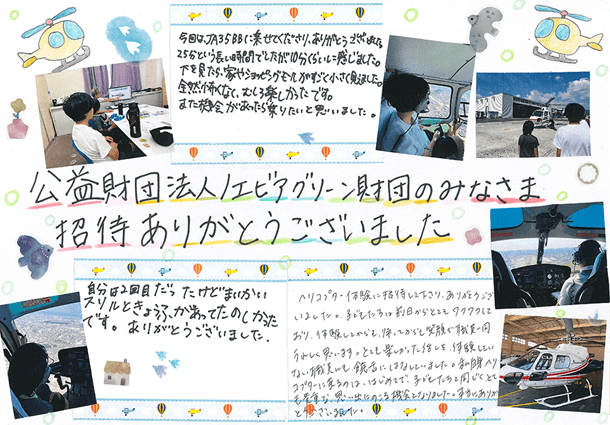 今回はJA35BBに乗せてくださり、ありがとうございました。
25分という長い時間でしたが10分くらいに感じました。
下を見たら、家やショッピングモールがすごく小さく見えました。
全然怖くなくて、むしろ楽しかったです。
また機会があったら乗りたいと思いました。
公益財団法人ノエビアグリーン財団のみなさま
招待ありがとうございました
自分は2回目だったけどまいかい
スリルときょうふがあってたのしかった
です。ありがとうございました。
ヘリコプター体験に招待して下さり、ありがとうござ
いました。子どもたちは前日からとてもワクワクして
おり、体験してからも、帰ってからも笑顔で職員一同
うれしく思います。とても楽しかった話しを、体験してい
ない職員にも報告にはなしていました。私自身ヘリ
コプターに乗るのは、はじめてで、子どもたちと同じくとて
も貴重な思い出にのこる機会となりました。本当にありが
とうございました。